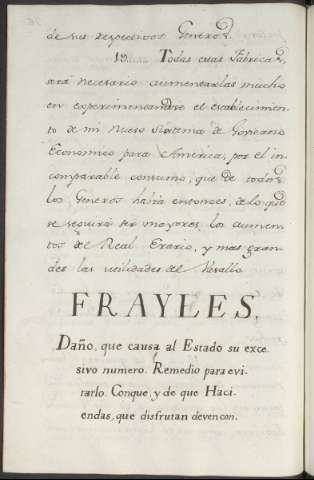 de sus respectivos Generos.
19...... Todas estas Fabricas,
será necesario aumentarlas mucho
en experimentandose el establecimien-
to de mi Nuevo Sistema de Govierno
Economico para America, por el in-
comparable consumo, que de todos
los Generos habrá entonces, de lo que
se seguirá ser mayores los aumen-
tos del Real Erario, y mas gran-
des las utilidades del Vasallo.
FRAYLES.
Daño, que causa al Estado su exce-
sivo numero. Remedio para evi-
tarlo. Conque, y de que Haci-
endas, que disfrutan deven con.